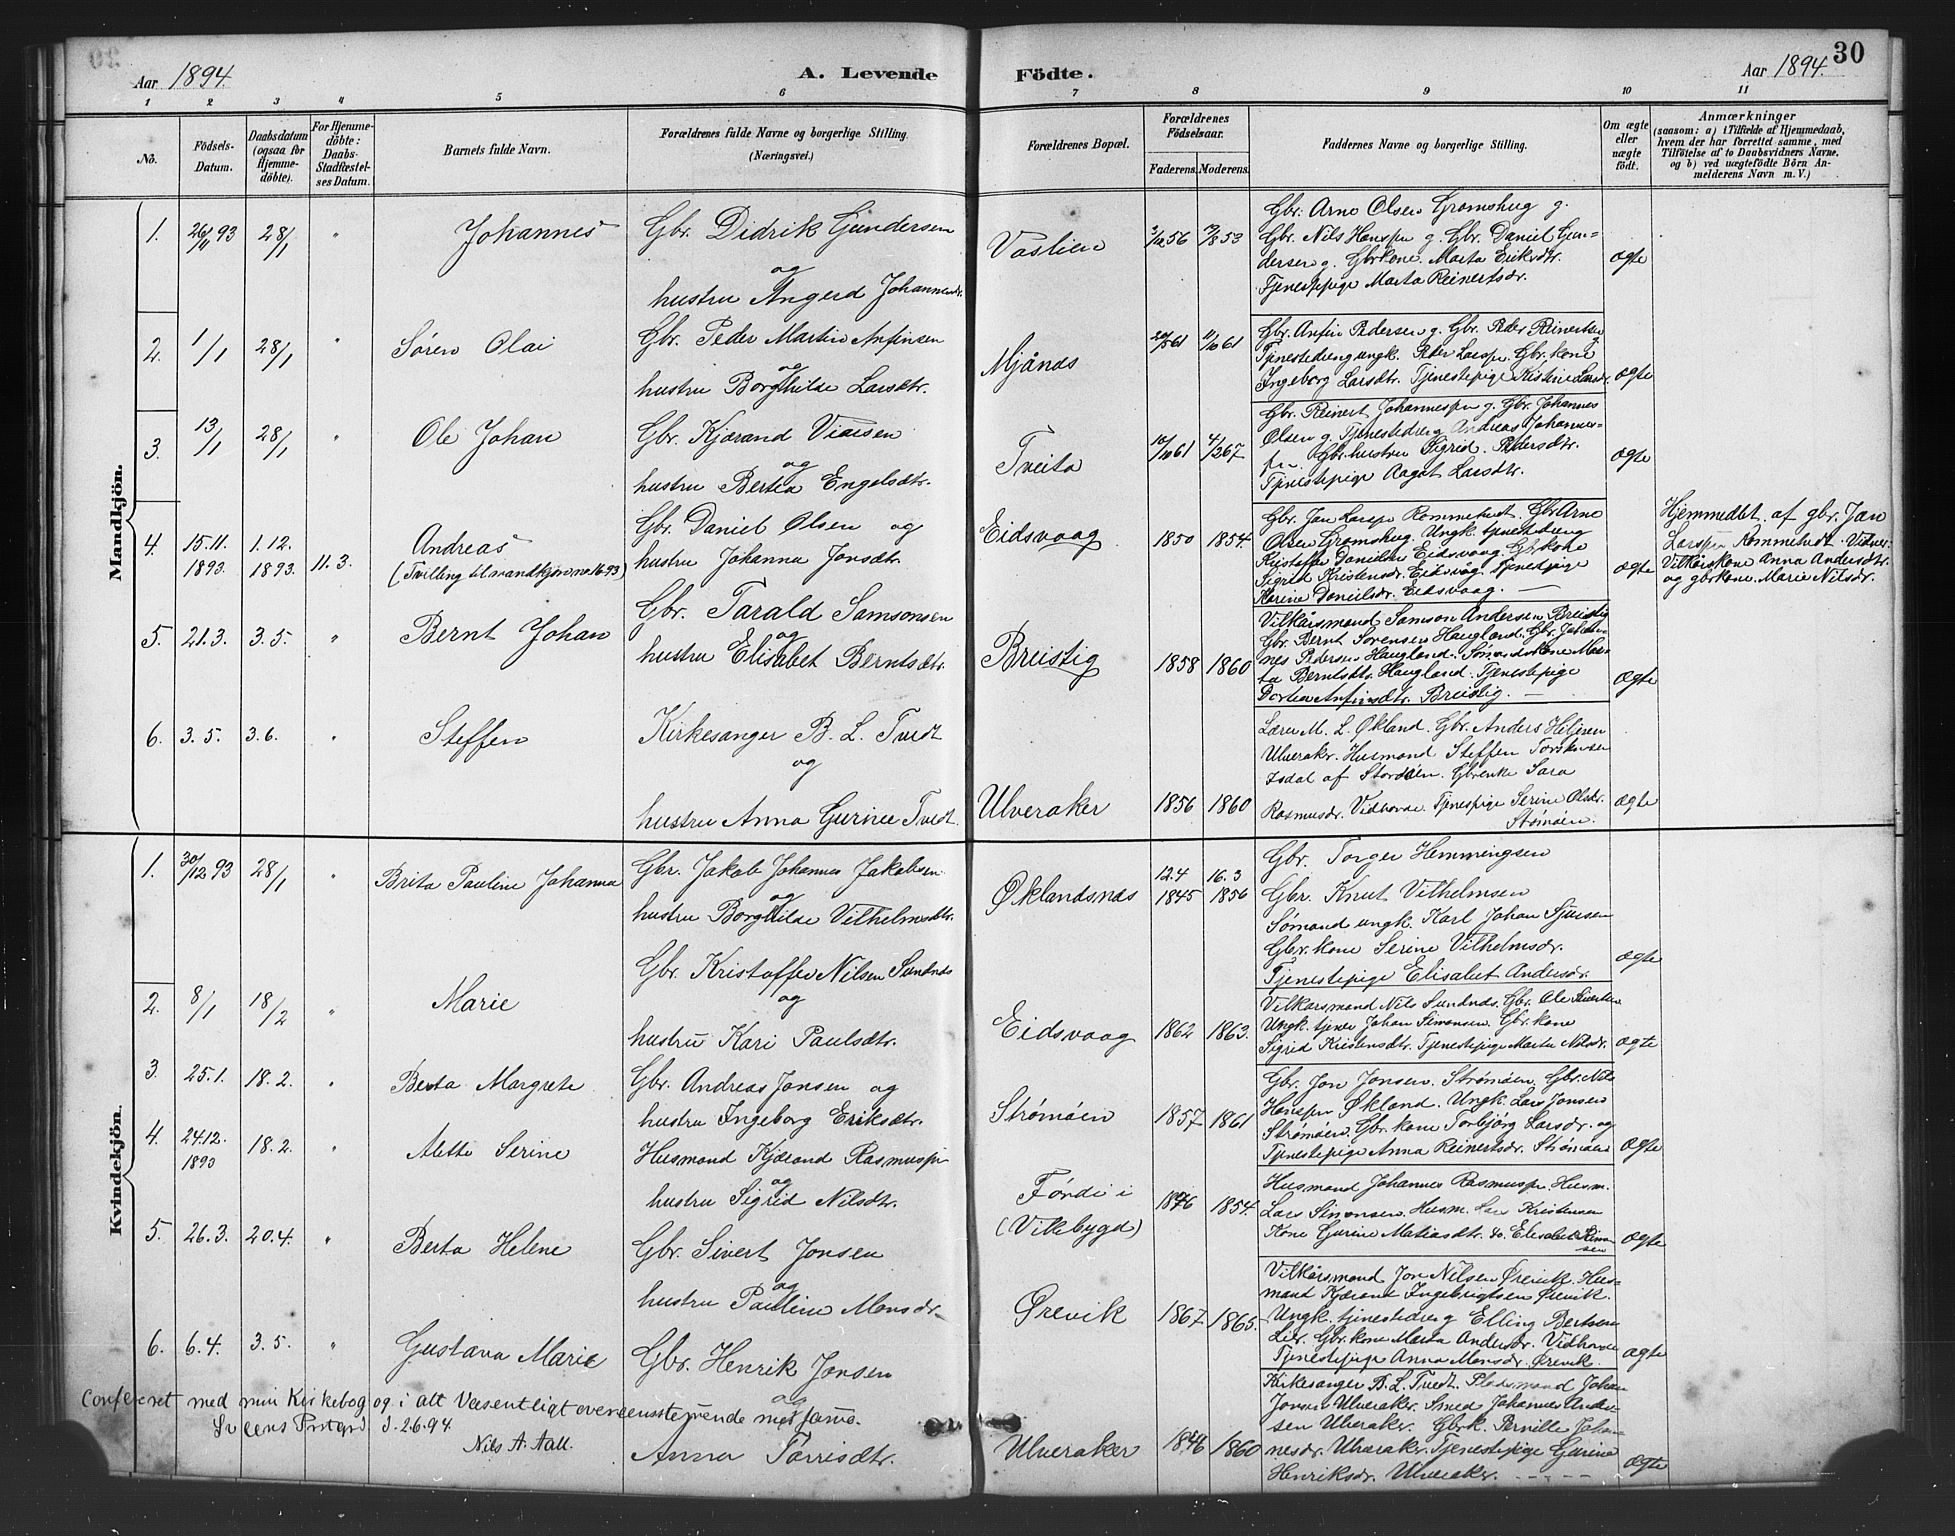 Aar 1894.
A. Levende Födte.
Aar 1894.
30
1 2 3 4 5 6 7 8 9 10 11
No.
Födsels-Datum.
Daabsdatum (ogsaa for Hjemme-döbte).
For Hjemme-döbte: Daabs-Stadfæstel-ses Datum.
Barnets fulde Navn.
Forældrenes fulde Navne og borgerlige Stilling.
(Næringsvei.)
Forældrenes Bopæl.
Forældrenes Födselsaar.
Faderens. Moderens.
Faddernes Navne og borgerlige Stilling.
Om ægte eller uægte födt.
Anmærkninger
(saasom: a) i Tilfælde af Hjemmedaab,
hvem der har forrettet samme, med
Tilföielse af to Daabsvidners Navne,
og b) ved uægtefödte Börn An-
melderens Navn m. V.)
Mandkjön.
1. 26/11 93 28/1 " Johannes
Gbr. Didrik Gundersen
og
hustru Angerd Johannesdr.
Vaslien
56 53
Gbr. Arne Olsen Gromshug g.
Gbr. Nils Hanssen g. Gbr. Daniel Gun-
dersen g. Gbrkone. Marta Eriksdtr.
Tjenestepige Marta Reinertsdr.
ægte
2. 1/1 28/1 " Søren Olai
Gbr. Peder Martin Anfinsen
og
hustru Borghilde Larsdtr.
Mjånæs
20/5 61 11/10 61
Gbr. Anfin Pedersen g. Gbr. Peder Reinertsen g.
Tjenestedreng ungk. Peder Larssen. Gbr. kone
Ingeborg Larsdtr. Tjenestepige Kristine Larsdr.
ægte
3. 13/1 28/1 " Ole Johan
Gbr. Kjærand
og
hustru Bertea Engelsdtr.
Tveita
10/10 61 4/12 67
Gbr. Reinert Johannessen g. Gbr. Johannes
Olsen g. Tjenestedreng Andreas Johannes-
sen. Gbr. hustru Sigrid Pedersdtr.
Tjenestepige Aagot Larsdtr.
ægte
4. 15.11. 1893. 1.12. 1893. 11.3. Andreas
(Tvilling til mandkjøn no 16-93)
Gbr. Daniel Olsen og
hustru Johanna Jonsdtr.
Eidsvaag
1850 1854.
Gbr. Jan Larssen Rommetvedt. Gbr Arne
Olsen Gromshug. Ungk. tjenestedreng
Kristoffer Danielsen Eidsvaag. Gbrkone
Sigrid Kristensdr. Eidsvåg. Tjenestpige
Karine Danielsdr. Eidsvaag.
ægte
Hjemmedøbt af gbr. Jan
Larssen Rommetvedt. Vidner:
Vilkårskone Anna Andersdtr.
og gbrkone. Marie Nilsdr.
5. 21.3. 3.5. " Bernt Johan
Gbr. Tarald Samsonsen
og
hustru Elisabet Berntsdtr.
Breistig
1858 1860
Vilkårsmand Samson Andersen Breistig
Gbr. Bernt Sørensen Haugland. Gbr. Johan-
nes Pedersen Haugland. Sømandskone Mar-
ta Berntsdtr. Haugland. Tjenestepige
Dortea Anfinsdtr. Breistig.
ægte
6. 3.5. 3.6. " Steffen
Kirkesanger B. L. Tvedt
og
hustru Anna Gurine Tvedt.
Ulveraker
1856 1860
Lærer M. L. Økland. Gbr. Anders Helgesen
Ulveraker. Husmand Steffen Torstensen
Isdal af Stordøen. Gbrenke Sara
Rasmusdr. Vidhovde. Tjenestpige Serine Olsdr.
Strømøen.
ægte
Kvindekjön.
1. 30/12 93 28/1 " Brita Pauline Johanna
Gbr. Jakob Johannes Jakobsen
og
hustru Borghilde Vilhelmsdtr.
Øklandsnæs
12.4 1845 16.3 1856
Gbr. Torger Hemmingsen
Gbr. Knut Vilhelmsen
Sømand ungk. Karl Johan Sjursen
Gbr. kone Serine Vilhelmsdr.
Tjenestepige Elisabet Andersdr.
ægte
2. 8/1 18/2 " Marie
Gbr. Kristoffer Nilsen Sundnæs
og
hustru Kari Paulsdtr.
Eidsvaag
1862 1863.
Vilkårsmand Nils Sundnæs. Gbr. Ole Sivertsen
Ungk. tjener Johan Simonsen. Gbr. kone
Sigrid Kristensdtr. Tjenestepige Marta Nilsdr.
ægte
3. 25.1. 18.2. " Berta Margrete
Gbr. Andreas Jonsen og
hustru Ingeborg Eriksdtr.
Strømøen
1857 1861
Gbr. Jon Jonsen. Strømøen. Gbr. Nils
Hanssen Økland. Ungk. Lars Jonsen
Strømøen. Gbr. kone Torbjørg Larsdr. og
Tjenestepige Anna Reinertsdr. Strømøen
ægte
4. 24.12. 1893 18.2. " Alette Serine
Husmand Kjærand Rasmussen
og
hustru Sigrid Nilsdtr.
Førde i
(Vikebygd)
1846 1854.
Husmand Johannes Rasmussen. Husm.
Lars Simonsen. Husm. Lars Kristensen
Kone Gurine Matiasdtr. do. Elisabet Simon-
sen
ægte
5. 26.3. 20.4. " Berta Helene
Gbr. Sivert Jonsen
og
hustru Pauline Monsdr.
Ørevik
1867 1865.
Vilkårsmand Jon Nilsen Ørevik. Hus-
mand Kjærand Ingebrigtsen Ørevik.
Ungk. tjenestedreng Elling Bertsen
Lier. Gbr. kone Marta Andersdr. Vidhovde
Tjenestepige Anna Monsdr. Ørevik.
ægte
6. 6.4. 3.5. " Gustava Marie
Gbr. Henrik Jonsen
og
Anna Torrisdtr.
Ulveraker
1846 1860
Kirkesanger B. L. Tvedt. Pladsmand Johan
Jonsen Ulveraker. Smed Johannes Ander-
sen Ulveraker. Gbrk. Pernille Johan-
nesdr. Ulveraker. Tjenestepige Gurine
Henriksdr. Ulveraker.
ægte
Confereret med min Kirkebog og i alt Væsentligt overensstemmende med samme.
Sveens Prstgrd d. 2.6.94.
Nils A. Aall.